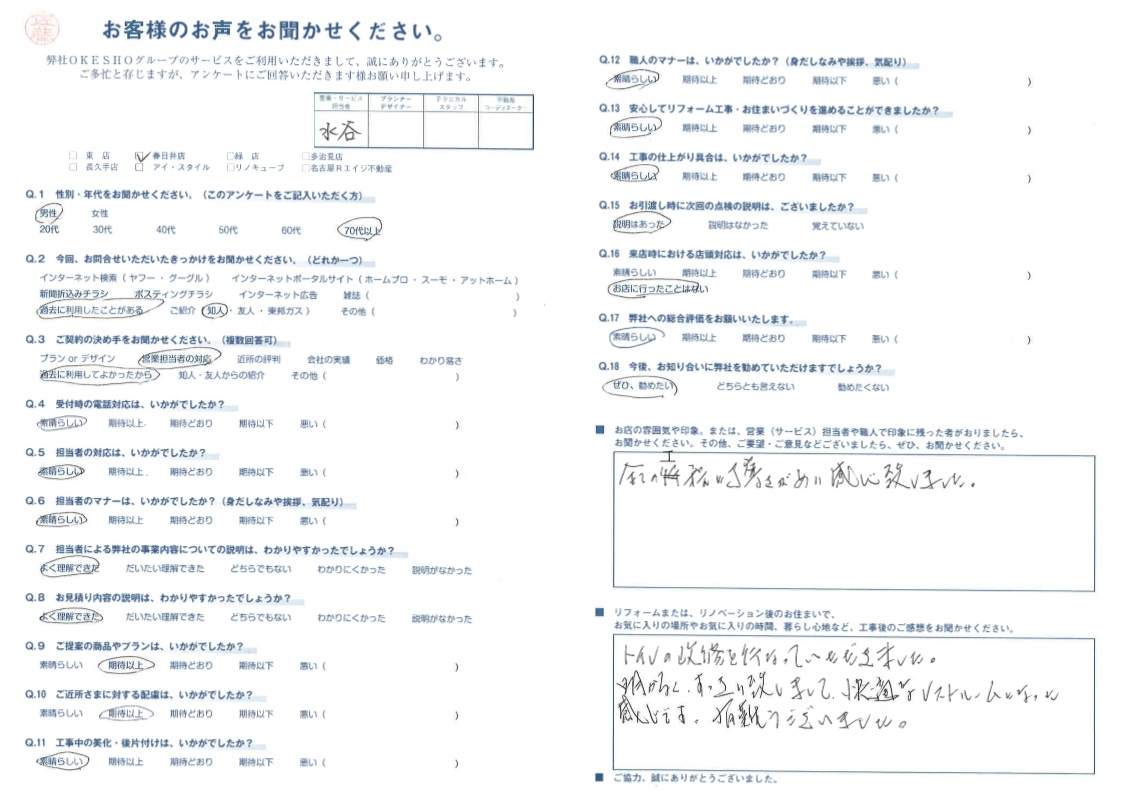 佐藤
お客様のお声をお聞かせください。
弊社OKESHOグループのサービスをご利用いただきまして、誠にありがとうございます。
ご多忙と存じますが、アンケートにご回答いただきます様お願い申し上げます。
営業・サービス担当者 プランナーデザイナー テクニカルスタッフ 不動産コーディネーター
水谷
□ 東 店 ☑ 春日井店 □緑 店 □多治見店
□ 長久手店 □ アイ・スタイル □リノキューブ □名古屋Rエイジ不動産
Q.1 性別・年代をお聞かせください。（このアンケートをご記入いただく方）
男性 女性
20代 30代 40代 50代 60代 70代以上
Q.2 今回、お問合せいただいたきっかけをお聞かせください。（どれか一つ）
インターネット検索（ ヤフー ・ グーグル ） インターネットポータルサイト（ ホームプロ ・ スーモ ・ アットホーム ）
新聞折込みチラシ ポスティングチラシ インターネット広告 雑誌（ ）
過去に利用したことがある ご紹介（ 知人 ・ 友人 ・ 東邦ガス ） その他（ ）
Q.3 ご契約の決め手をお聞かせください。（複数回答可）
プラン or デザイン 営業担当者の対応 近所の評判 会社の実績 価格 わかり易さ
過去に利用してよかったから 知人・友人からの紹介 その他（ ）
Q.4 受付時の電話対応は、いかがでしたか？
素晴らしい 期待以上 期待どおり 期待以下 悪い（ ）
Q.5 担当者の対応は、いかがでしたか？
素晴らしい 期待以上 期待どおり 期待以下 悪い（ ）
Q.6 担当者のマナーは、いかがでしたか？（身だしなみや挨拶、気配り）
素晴らしい 期待以上 期待どおり 期待以下 悪い（ ）
Q.7 担当者による弊社の事業内容についての説明は、わかりやすかったでしょうか？
よく理解できた だいたい理解できた どちらでもない わかりにくかった 説明がなかった
Q.8 お見積り内容の説明は、わかりやすかったでしょうか？
よく理解できた だいたい理解できた どちらでもない わかりにくかった 説明がなかった
Q.9 ご提案の商品やプランは、いかがでしたか？
素晴らしい 期待以上 期待どおり 期待以下 悪い（ ）
Q.10 ご近所さまに対する配慮は、いかがでしたか？
素晴らしい 期待以上 期待どおり 期待以下 悪い（ ）
Q.11 工事中の美化・後片付けは、いかがでしたか？
素晴らしい 期待以上 期待どおり 期待以下 悪い（ ）
Q.12 職人のマナーは、いかがでしたか？（身だしなみや挨拶、気配り）
素晴らしい 期待以上 期待どおり 期待以下 悪い（ ）
Q.13 安心してリフォーム工事・お住まいづくりを進めることができましたか？
素晴らしい 期待以上 期待どおり 期待以下 悪い（ ）
Q.14 工事の仕上がり具合は、いかがでしたか？
素晴らしい 期待以上 期待どおり 期待以下 悪い（ ）
Q.15 お引渡し時に次回の点検の説明は、ございましたか？
説明はあった 説明はなかった 覚えていない
Q.16 来店時における店頭対応は、いかがでしたか？
素晴らしい 期待以上 期待どおり 期待以下 悪い（ ）
お店に行ったことはない
Q.17 弊社への総合評価をお願いいたします。
素晴らしい 期待以上 期待どおり 期待以下 悪い（ ）
Q.18 今後、お知り合いに弊社を勧めていただけますでしょうか？
ぜひ、勧めたい どちらとも言えない 勧めたくない
■ お店の雰囲気や印象。または、営業（サービス）担当者や職人で印象に残った者がおりましたら、
お聞かせください。その他、ご要望・ご意見などございましたら、ぜひ、お聞かせください。
全ての 感心致しました。
■ リフォームまたは、リノベーション後のお住まいで、
お気に入りの場所やお気に入りの時間、暮らし心地など、工事後のご感想をお聞かせください。
トイレの改修を行なっていただきました。
致しまして、快適なレストルームとなった
感じです。有難うございました。
■ ご協力、誠にありがとうございました。